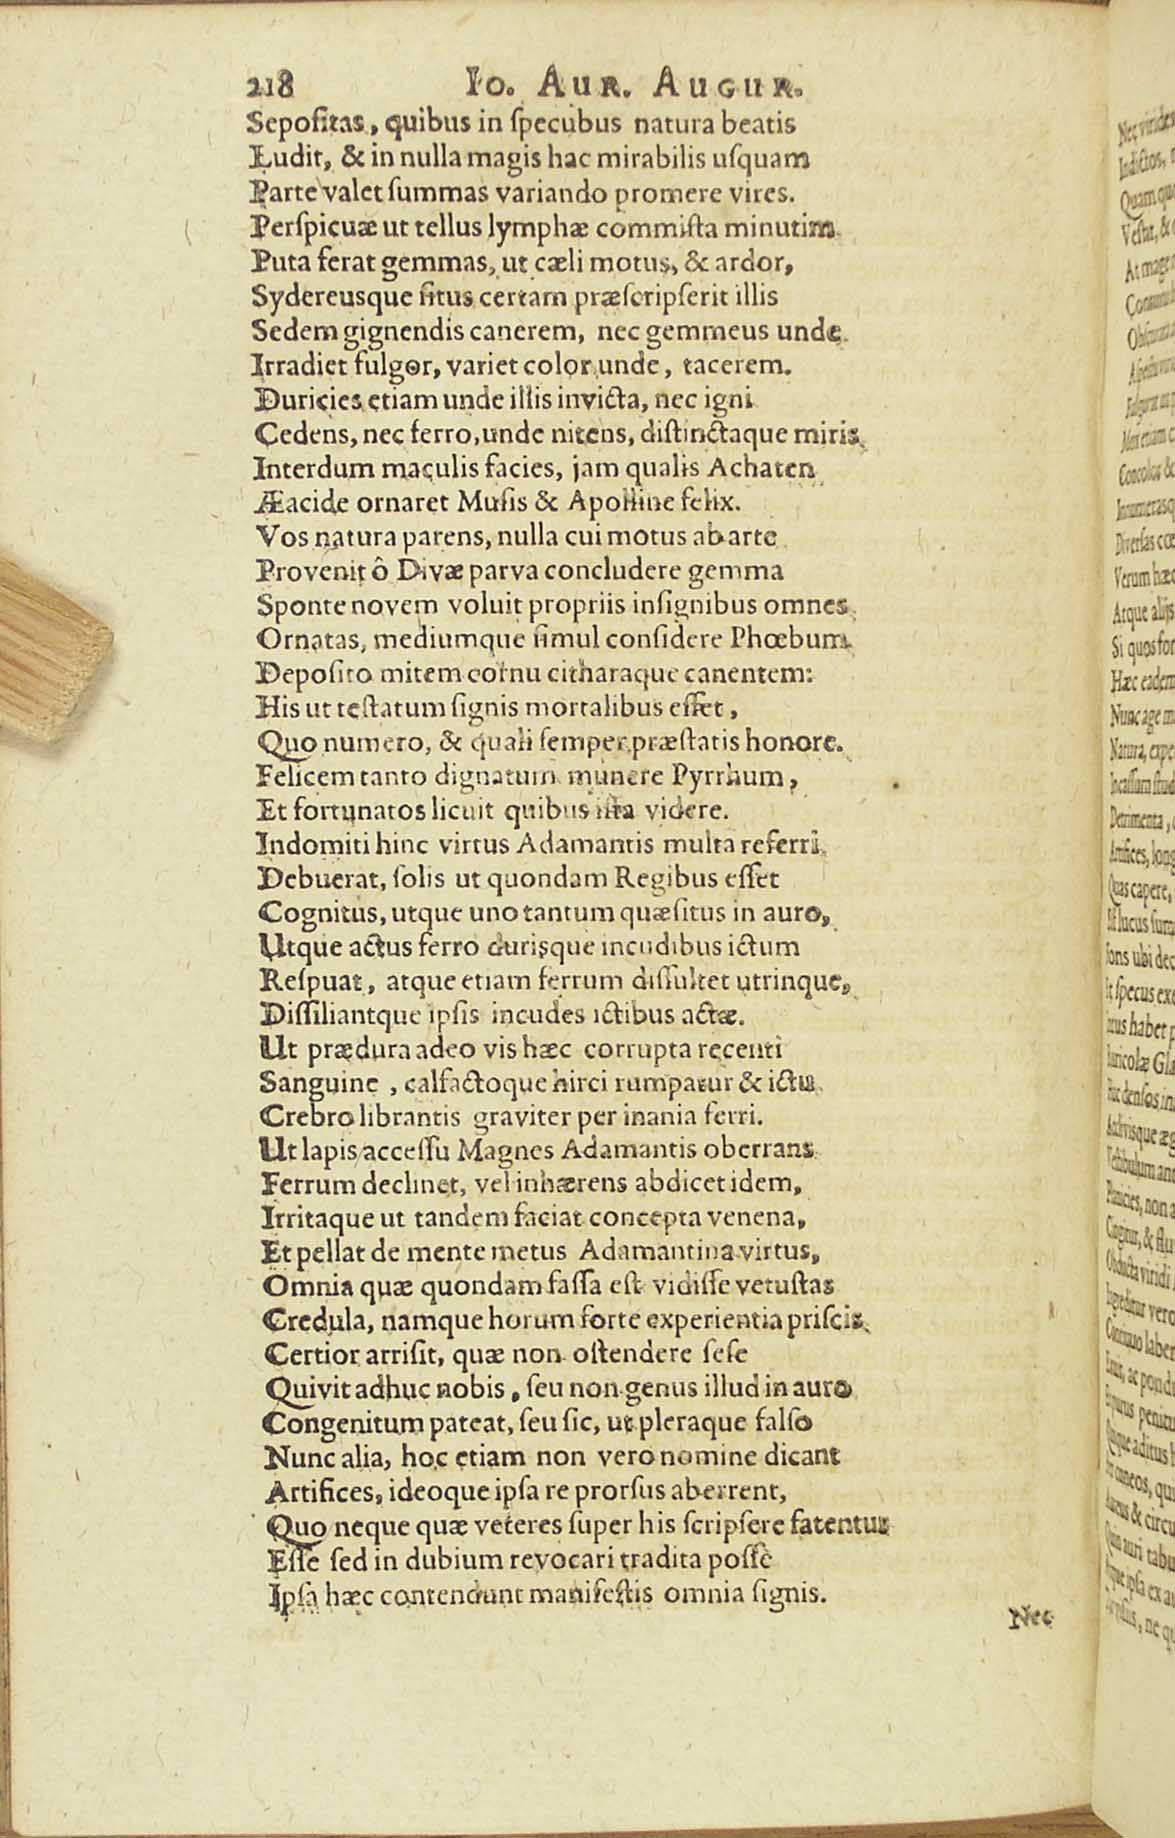 218 Io. Aur. Augur.
Sepositas, quibus in specubus natura beatis
Ludit, & in nulla magis hac mirabilis usquam
Parte valet summas variando promere vires.
Perspicuæ ut tellus lymphæ commista minutim
Puta ferat gemmas, ut cæli motus, & ardor,
Sydereusque situs certam præscripserit illis
Sedem gignendis canerem, nec gemmeus unde
Irradiet fulgor, variet color unde, tacerem.
Duricies etiam unde illis invicta, nec igni
Cedens, nec ferro, unde nitens, distinctaque miris
Interdum maculis facies, jam qualis Achaten
Æacide ornaret Musis & Apolline felix.
Vos natura parens, nulla cui motus ab arte
Provenit ô Divæ parva concludere gemma
Sponte novem voluit propriis insignibus omnes
Ornatas, mediumque simul considere Phœbum
Deposito mitem cornu citharaque canentem:
His ut testatum signis mortalibus esset,
Quo numero, & quali semper præstatis honore.
Felicem tanto dignatum munere Pyrrhum,
Et fortunatos licuit quibus ista videre.
Indomiti hinc virtus Adamantis multa referri
Debuerat, solis ut quondam Regibus esset
Cognitus, utque uno tantum quæsitus in auro,
Utque actus ferro durisque incudibus ictum
Respuat, atque etiam ferrum dissultet utrinque,
Dissiliantque ipsis incudes ictibus actæ.
Ut prædura adeo vis hæc corrupta recenti
Sanguine, calfactoque hirci rumpatur & ictu
Crebro librantis graviter per inania ferri.
Ut lapis accessu Magnes Adamantis oberrans
Ferrum declinet, vel inhærens abdicet idem,
Irritaque ut tandem faciat concepta venena,
Et pellat de mente metus Adamantina virtus,
Omnia quæ quondam fassa est vidisse vetustas
Credula, namque horum forte experientia priscis
Certior arrisit, quæ non ostendere sese
Quivit adhuc nobis, seu non genus illud in auro
Congenitum pateat, seu sic, ut pleraque falso
Nunc alia, hoc etiam non vero nomine dicant
Artifices, ideoque ipsa re prorsus aberrent,
Quo neque quæ veteres super his scripsere fatentur
Esse sed in dubium revocari tradita posse
Ipsa hæc contendunt manifestis omnia signis.
Nec